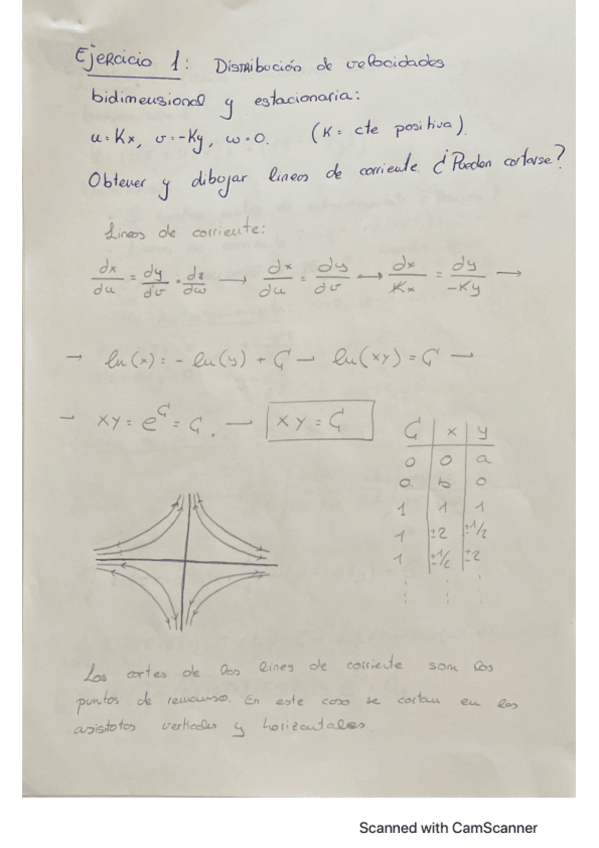 Ejercicio 1: Distribución de velocidades
bidimensional y estacionaria:
u=Kx, v=-Ky, w=0. (K= cte positiva).
Obtener y dibujar lineas de corriente. ¿Pueden cortarse?
Lineas de corriente:
dx/du = dy/dv = dz/dw → dx/du = dy/dv → dx/Kx = dy/-Ky →
→ ln(x) = - ln(y) + C₁ → ln(xy) = C₁ →
→ xy = e^C₁ = C₁. → xy = C₁
C₁ | x | y
0 | 0 | a
0 | b | 0
1 | 1 | 1
1 | ±2 | ±1/2
1 | ±1/2 | ±2
⋮ ⋮ ⋮
Los cortes de las lines de corriente som los
puntos de remanso. En este caso se cortan en las
asintotas verticales y horizontales.
Scanned with CamScanner